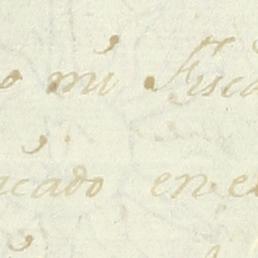 o mi Fisca
icado en e